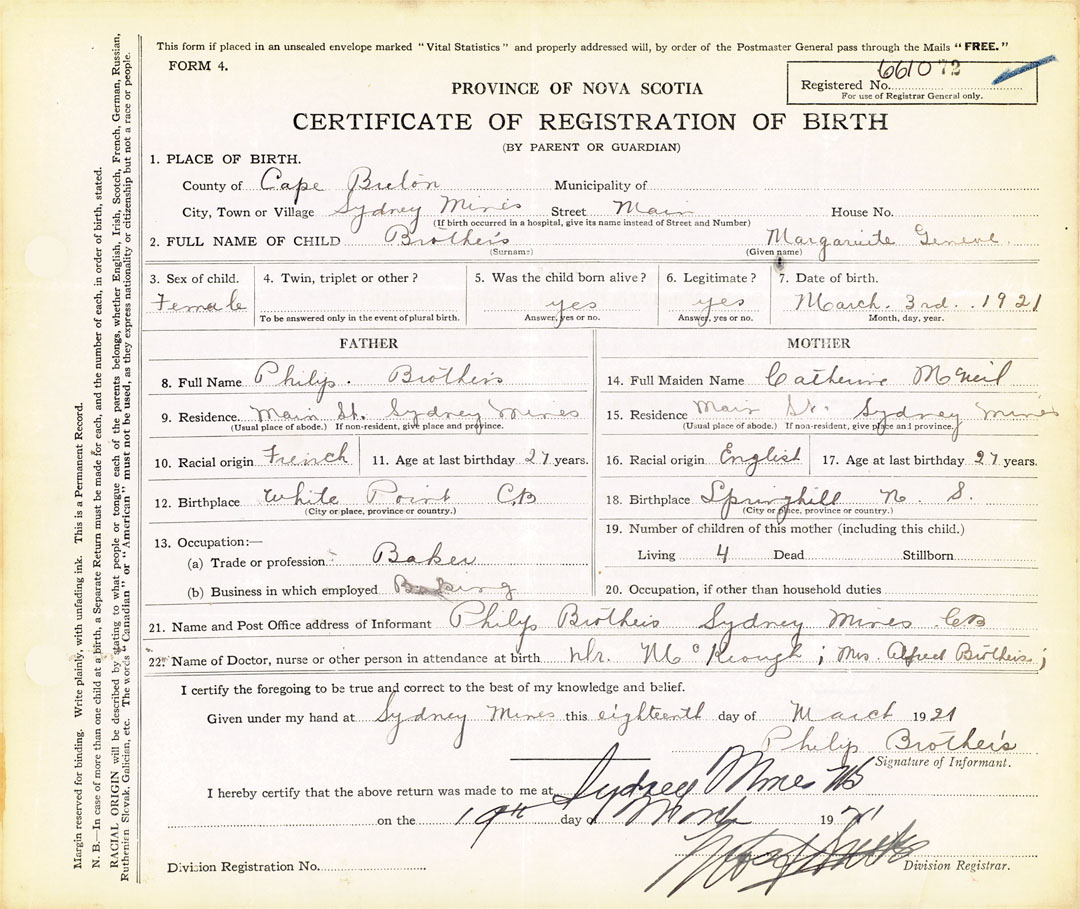 This form if placed in an unsealed envelope marked "Vital Statistics" and properly addressed will, by order of the Postmaster General pass through the Mails "FREE."
FORM 4.
661072
Registered No.
For use of Registrar General only.
PROVINCE OF NOVA SCOTIA
CERTIFICATE OF REGISTRATION OF BIRTH
(BY PARENT OR GUARDIAN)
1. PLACE OF BIRTH.
County of Cape Breton Municipality of
City, Town or Village Sydney Mines Street Main House No.
(If birth occurred in a hospital, give its name instead of Street and Number)
2. FULL NAME OF CHILD Brothers Margariete Geneve.
(Surname) (Given name)
3. Sex of child. 4. Twin, triplet or other? 5. Was the child born alive? 6. Legitimate? 7. Date of birth.
Female yes yes March. 3rd. 1921
To be answered only in the event of plural birth. Answer, yes or no. Answer, yes or no. Month, day, year.
FATHER
8. Full Name Philip. Brothers
9. Residence. Main St. Sydney Mines
(Usual place of abode.) If non-resident, give place and province.
10. Racial origin French 11. Age at last birthday 27 years.
12. Birthplace White Point C.B
(City or place, province or country.)
13. Occupation:—
(a) Trade or profession Baker
(b) Business in which employed Baking
MOTHER
14. Full Maiden Name Catherine McNeil
15. Residence Main St. Sydney Mines
(Usual place of abode.) If non-resident, give place and province.
16. Racial origin English 17. Age at last birthday 27 years.
18. Birthplace Springhill N. S.
(City or place, province or country.)
19. Number of children of this mother (including this child.)
Living 4 Dead Stillborn
20. Occupation, if other than household duties
21. Name and Post Office address of Informant Philip Brothers Sydney Mines CB
22. Name of Doctor, nurse or other person in attendance at birth Dr. McKeough; Mrs. Alfred Brothers;
I certify the foregoing to be true and correct to the best of my knowledge and belief.
Given under my hand at Sydney Mines this eighteenth day of March 1921
Philip Brothers
Signature of Informant.
I hereby certify that the above return was made to me at Sydney Mines
on the 19th day of March 1921
Division Registration No. Division Registrar.
Margin reserved for binding. Write plainly, with unfading ink. This is a Permanent Record.
N. B.—In case of more than one child at a birth, a Separate Return must be made for each, and the number of each, in order of birth, stated.
RACIAL ORIGIN will be described by stating to what people or tongue each of the parents belongs, whether English, Irish, Scotch, French, German, Russian,
Ruthenian Slovak, Galician, etc. The words "Canadian" or "American" must not be used, as they express nationality or citizenship but not a race or people.